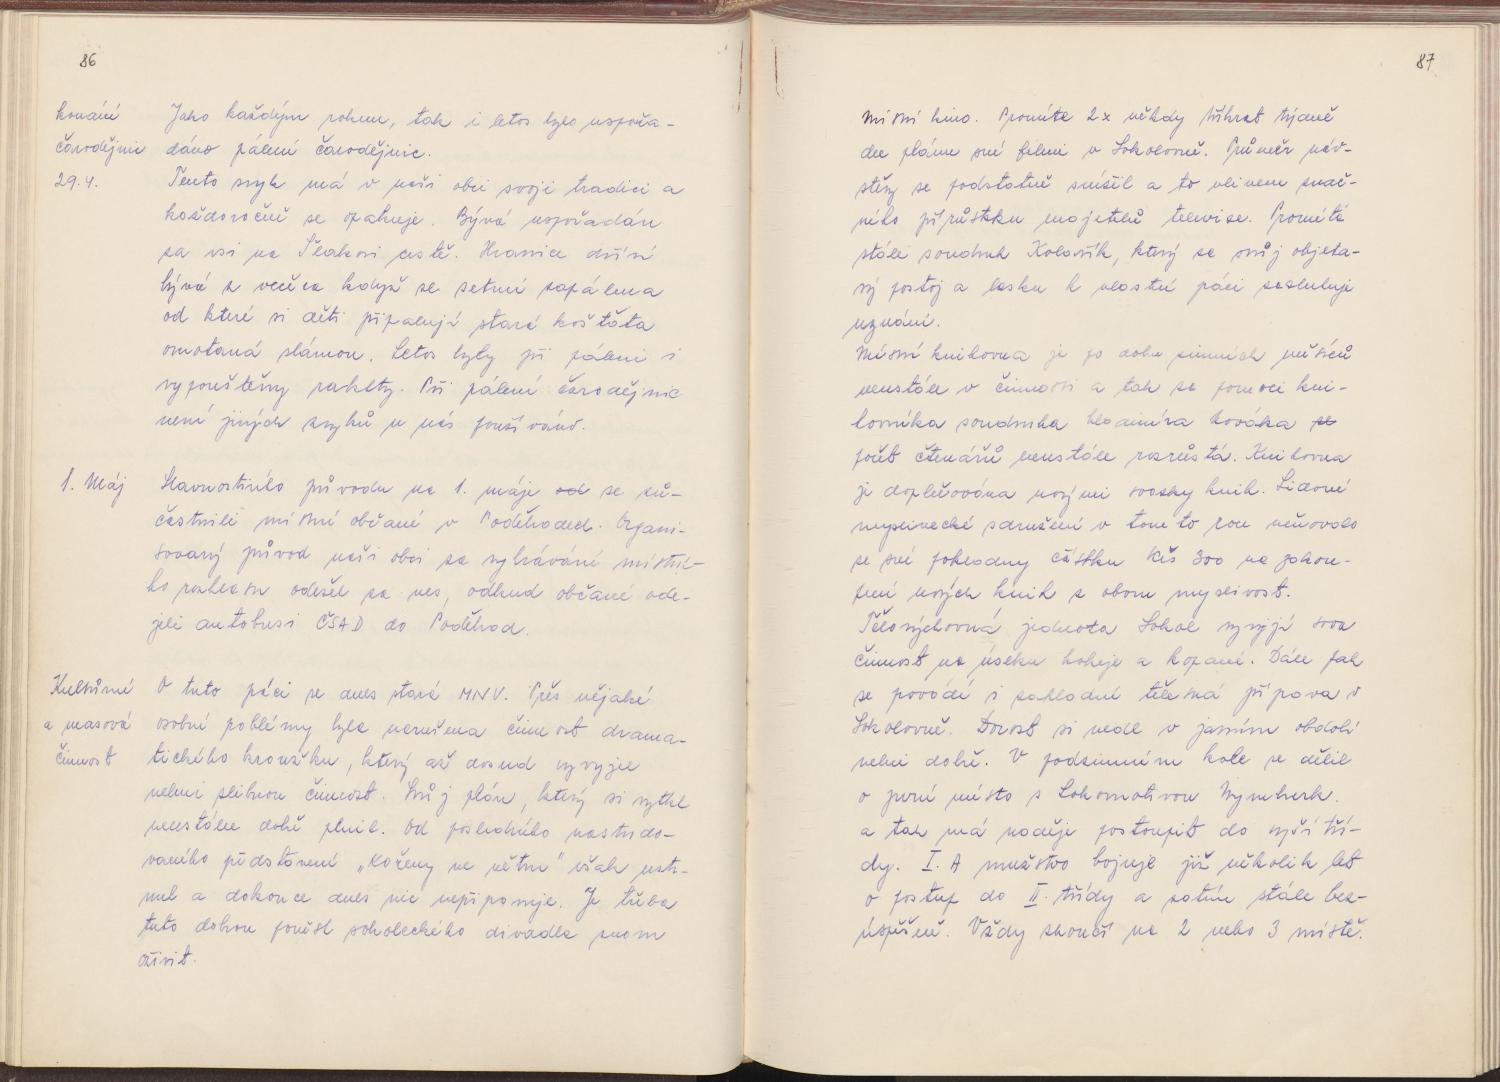 86
konání
čarodějnic
29.4.
Jako každým rokem, tak i letos bylo uspořá-
dáno pálení čarodějnic.
Tento zvyk má v naší obci svoji tradici a
každoročně se opakuje. Bývá uspořádán
za vsí na cestě. Hranice dříví
bývá z večera když se setmí zapálena
od které si děti připalují stará košťata
omotaná slámou. Letos byly při pálení i
vypouštěny rakety. Při pálení čarodějnic
není jiných zvyků u nás používáno.
1. Máj
Slavnostního průvodu na 1. máje od se zú-
častnili místní občané v Poděbradech. Organi-
sovaný průvod naší obcí za vyhrávání místní-
ho rozhlasu odešel za ves, odkud občané ode-
jeli autobusi ČSAD do Poděbrad.
Kulturní
a masová
činnost
O tuto práci se dnes stará MNV. Přes nějaké
osobní problémy byla narušena činnost drama-
tického kroužku, který až dosud vyvyjel
velmi slibnou činnost. Svůj plán, který si vytkl
neustále dobře plnil. Od posledního nastudo-
vaného představení „Kořeny ve větru" však ustr-
nul a dokonce dnes nic nepřipravuje. Je třeba
tuto dobrou pověst divadla znovu
oživit.
87
Místní kino. Promítá 2x někdy třikrát týdně
dle plánu své filmi v Sokolovně. Průměr náv-
štěv se podstatně snížil a to vlivem znač-
ného přírůstku majetelů televise. Promítá
stále soudruh Kolařík, který za svůj objeta-
vý postoj a lásku k vlastní práci zasluhuje
uznání.
Místní knihovna je po dobu zimních měsíců
neustále v činnosti a tak za pomoci kni-
hovníka soudruha Vladimíra Nováka se
počet čtenářů neustále rozrůstá. Knihovna
je doplňována novými svazky knih. Lidové
myslivecké sdružení v tomto roce věnovalo
ze své pokladny částku Kčs 300 na zakou-
pení nových knih z oboru myslivost.
Tělovýchovná jednota Sokol vyvyjí svou
činnost na úseku hokeje a kopané. Dále pak
se provádí i základní tělesná příprava v
Sokolovně. Dorost si vedl v jarním období
velmi dobře. V podzimním kole se dělil
o první místo s Lokomotivou Nymburk.
a tak má naději postoupit do vyšší tří-
dy. I. A mužstvo bojuje již několik let
o postup do II. třídy a zatím stále bez-
úspěšně. Vždy skončí na 2 nebo 3 místě.